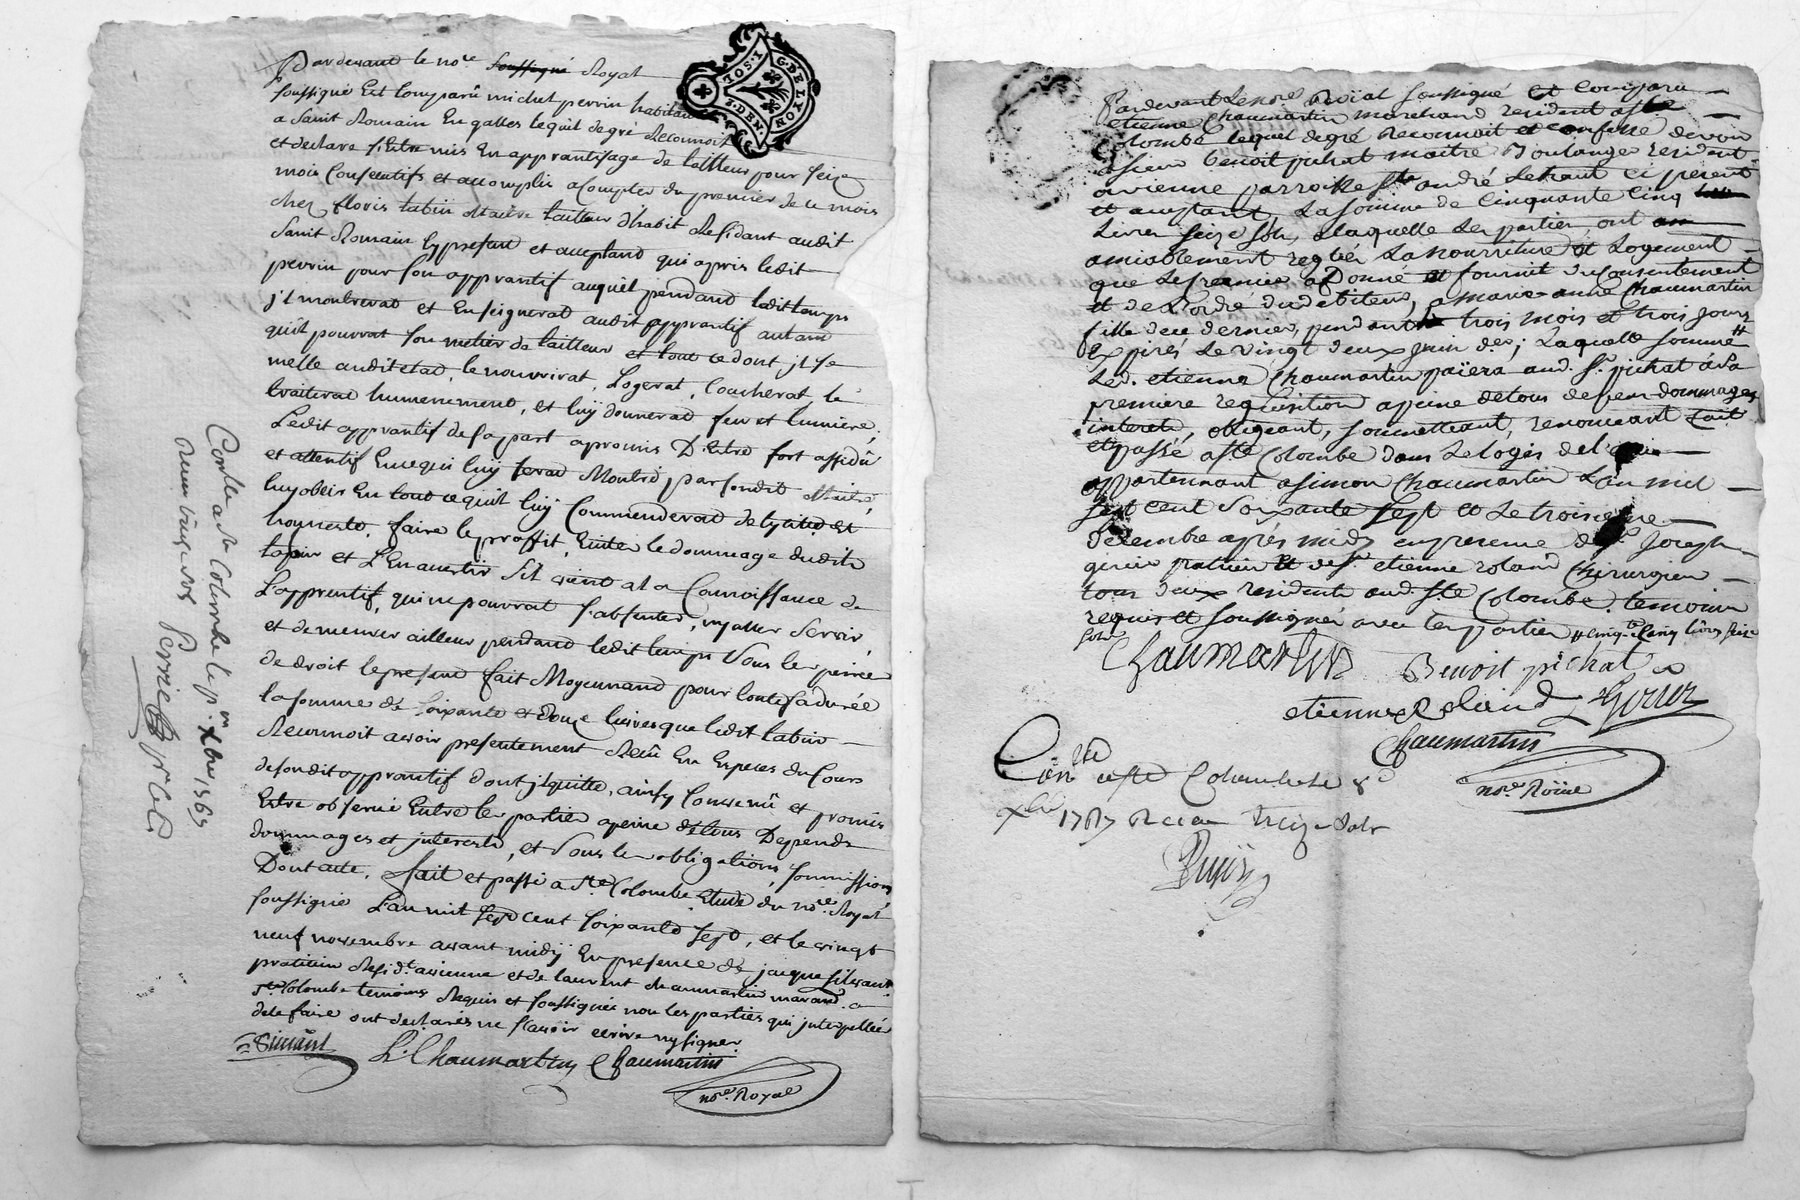 Pardevant le nore soussigné Royal
soussigné Est Comparû michel perrin habitant
a Saint Romain En galles lequel de gré Reconnoit
et declare s'Estre mis En apprantissage de tailleur pour seize
mois Consecutifs et accomplis a Compter du premier de ce mois
chez floris tabin Maitre tailleur d'habit Residant audit
Saint Romain Cy present et acceptant qui a pris ledit
perrin pour son apprantif auquel pendant ledit temps
jl montrerat et Enseignerat audit apprantif autant
qu'il pourrat son metier de tailleur et tout ce dont jl se
melle audit etat, le nourrirat, Logerat, Coucherat, le
traiterat humenement, et luy donnerat feu et lumiere;
Ledit apprantif de sa part a promis D'Estre fort assidû
et attentif En ce qui luy serat Montré par sondit Maitre,
luy obeir En tout ce qu'il luy Commenderat de licite et
honneste, faire le proffit, Eviter le dommage dudit
tabin et L'En avertir s'il vient a la Connoissance de
L'apprentif, qui ne pourrat s'absenter, ny aller servir,
et demeurer ailleur pendant ledit temps sous les peines
de droit le present fait Moyennant pour toute sa durée
la somme de soixante et Douze livres que ledit tabin
Reconnoit avoir presentement Reçû En Especes du Cours
de sondit apprantif dont jl quitte, ainsy Convenû et promis
Estre observé Entre les parties a peine de tous Depends
dommages et jnterests, et sous les obligations, soumissions
Dont acte, fait et passé a Ste Colombe Etude du nore Royal
soussigné L'an mil sept cent soixante sept, et le vingt
neuf novembre avant midy En presence de jacque silvant
praticien Residt a vienne et de laurent chaumartin marand a
ste Colombe temoins Requis et soussignés non les parties qui jnterpellées
de le faire ont declarés ne sçavoir ecrire ny signer
L. Chaumartin Chaumartin
nore Royal
Conlé a Ste Colombe le pr. Xbre 1767
G. DE LYON
1. SOL.
Pardevant Le nore Roïal soussigné Est comparu
etienne Chaumartin marchand resident a ste
Colombe lequel de gré reconnoit et confesse devoir
a sieur benoit pichat maitre Boulanger resident
a vienne parroisse st andré Le haut cy present
et acceptant, La somme de Cinquante Cinq
Livres seize sols, a laquelle les parties ont
amiablement reglés La nourriture et Logement
que Le premier a Donné et fournit du consentement
et de L'ordre du debiteur, a marie anne Chaumartin
fille de ce dernier, pendant trois mois et trois jours
Expirés Le vingt deux juin der; Laquelle somme
Led. etienne Chaumartin païera aud. sr. pichat a sa
premiere requisition a peine de tous depens dommages
interets, obligeant, soumettant, renonceant fait
et passé a ste Colombe dans Le logis de
appartennant a simon Chaumartin L'an mil
sept cent soixante sept et Le troisieme
Decembre après midy en presence de sr joseph
praticien et de sr etienne roland Chirurgien
tous deux residents aud. ste Colombe temoins
requis et soussignés avec les parties # cinqte Cinq livres seize
sols
Chaumartin Benoit pichat
etienne Roland
Chaumartin
nore Roïal
Conlle a ste Colombe le 8e
Xbre 1767 Receu Treize sols